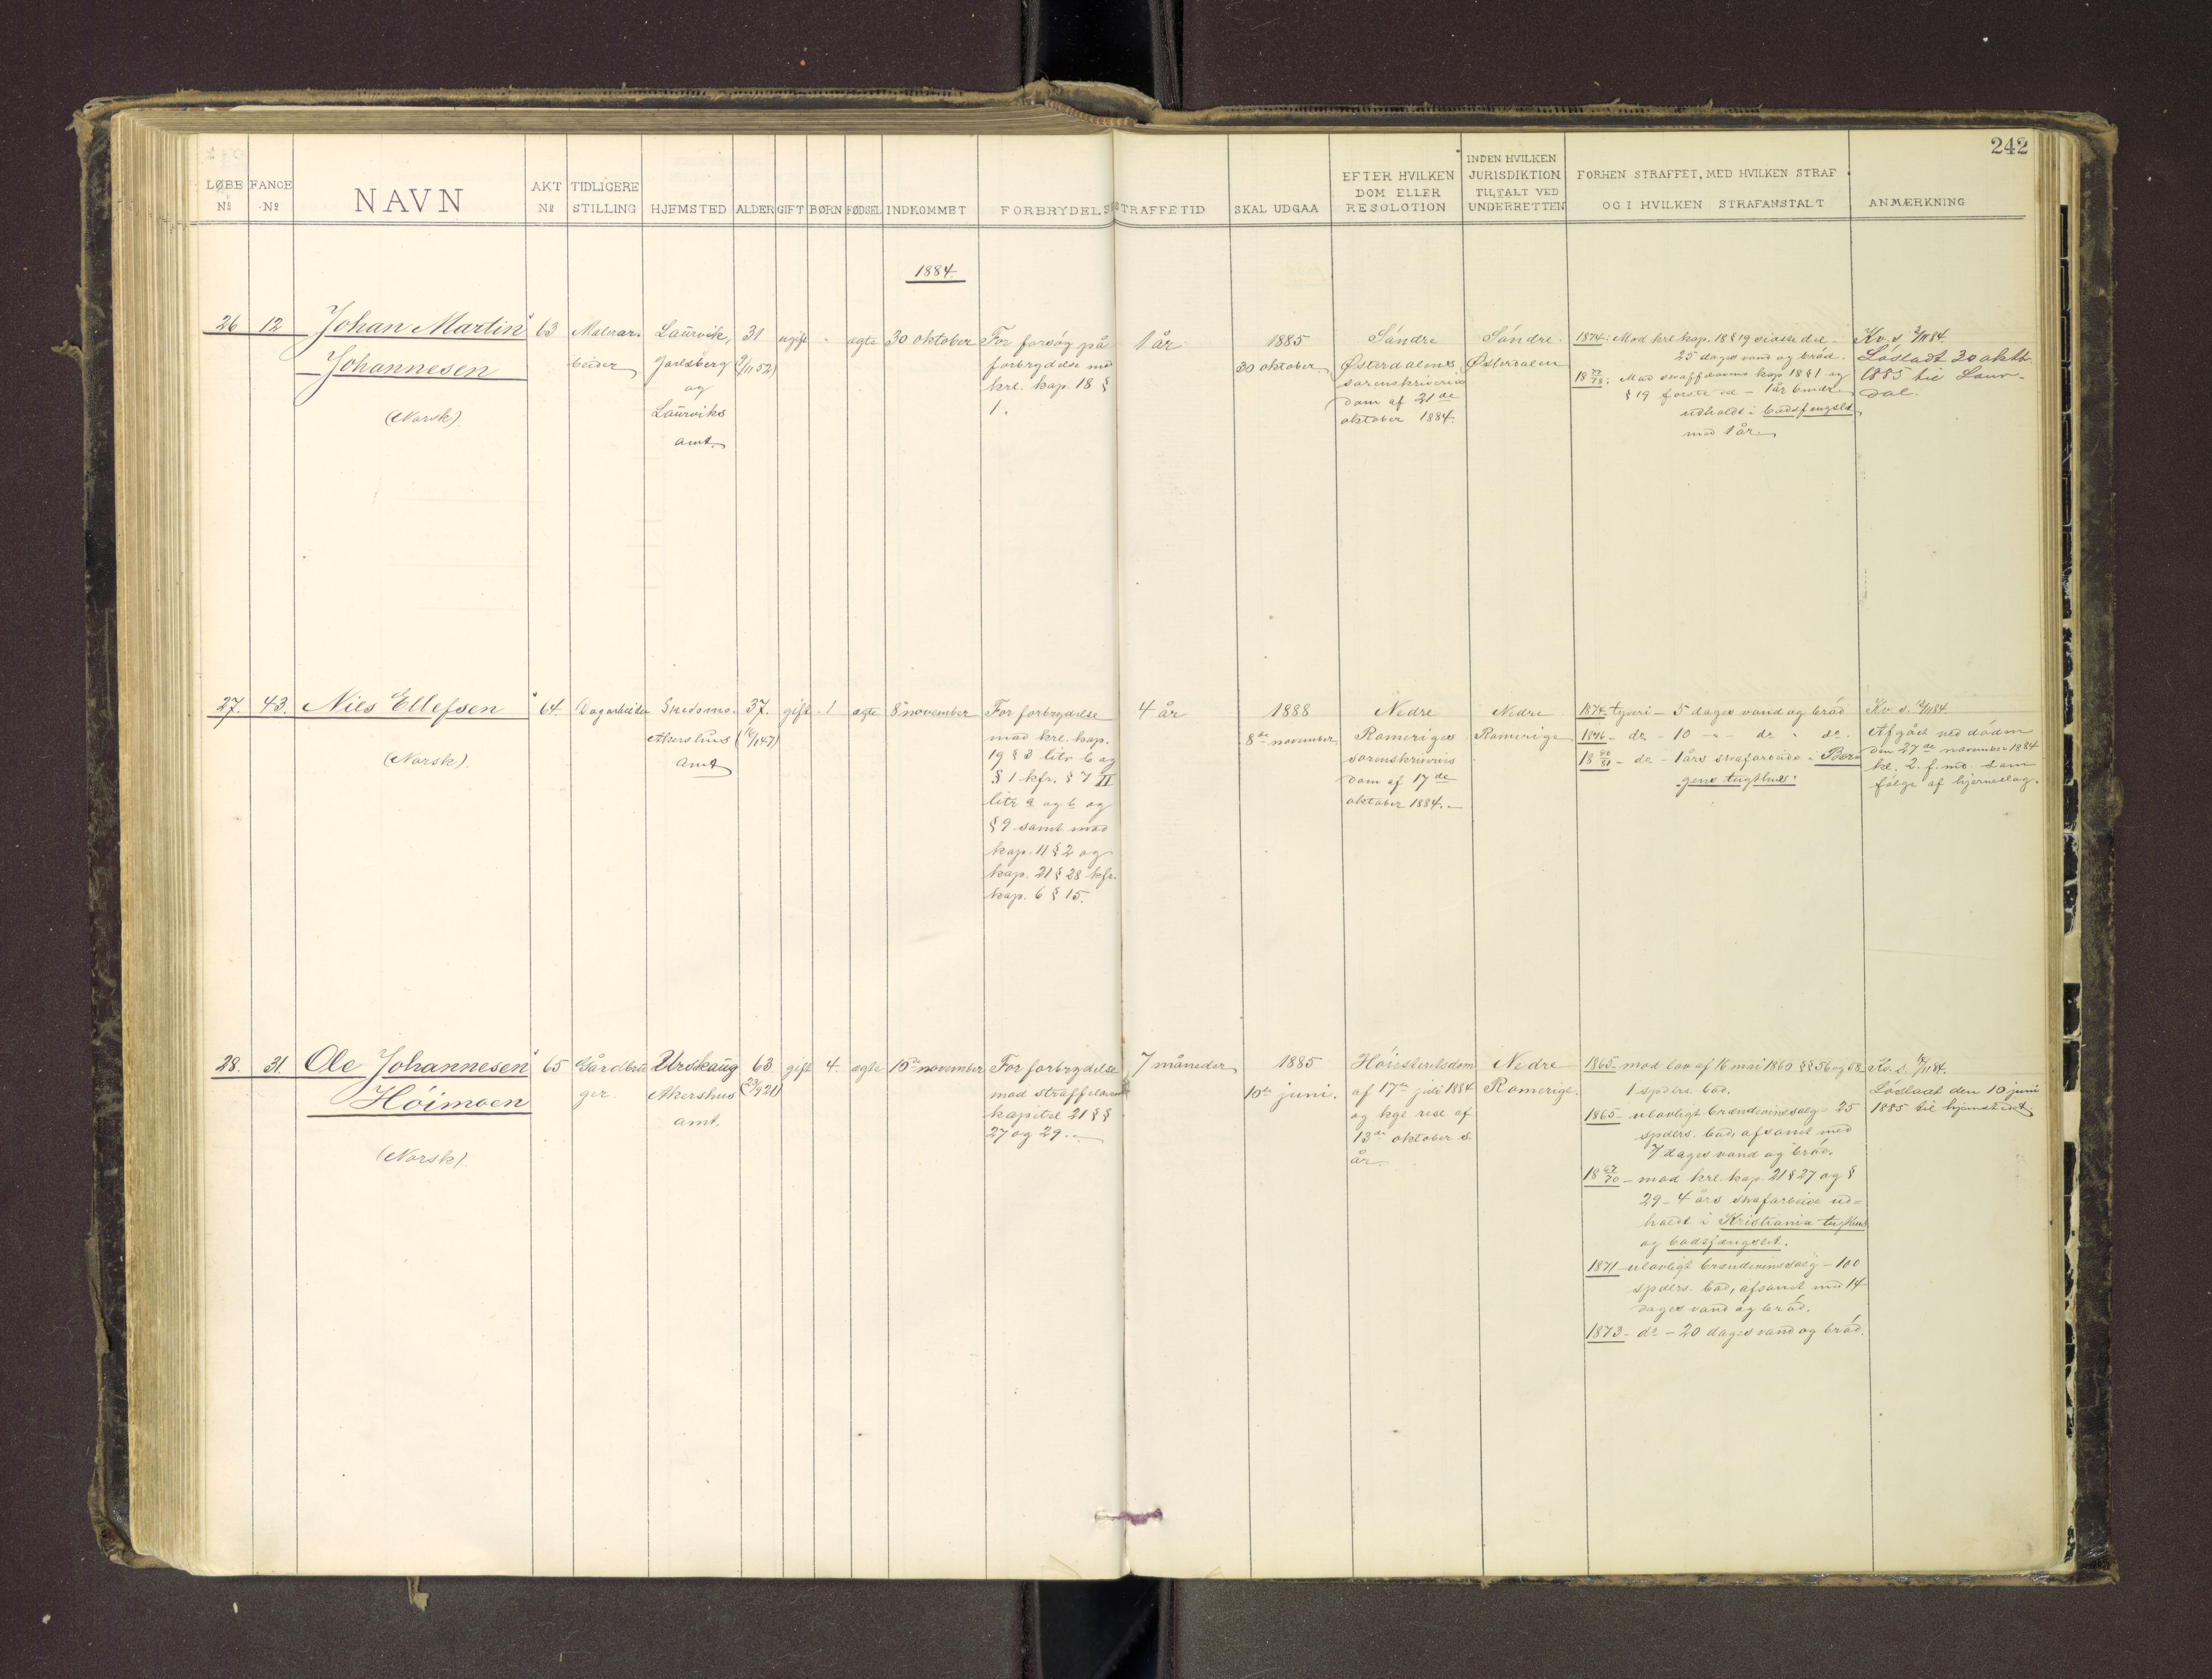 242
LØBE Nº
FANGE Nº
NAVN
AKT Nº
TIDLIGERE STILLING
HJEMSTED
ALDER
GIFT
BØRN
FØDSEL
INDKOMMET
FORBRYDELSE
STRAFFETID
SKAL UDGAA
EFTER HVILKEN
DOM ELLER
RESOLOTION
INDEN HVILKEN
JURISDIKTION
TILTALT VED
UNDERRETTEN
FORHEN STRAFFET, MED HVILKEN STRAF
OG I HVILKEN STRAFANSTALT
ANMÆRKNING
1884.
26
12
Johan Martin
Johannesen
(Norsk).
63
Malerar-
beider
Laurvik,
Jarlsberg
og
Laurviks
amt.
31
(9/11 52)
ugift
-
ægte
30 oktober
For forsøg på
forbrydelse mod
krl. kap. 18 §
1.
1 år
1885
30 oktober.
Søndre
Østerdalens
sorenskriveries
dom af 21de
oktober 1884.
Søndre
Østerdalen
1874: Mod krl. kap. 18 § 19 sidste del –
25 dages vand og brød.
18 77/78: Mod straffelovens kap 18 § 1 og
§ 19 første del – 1 år 6 mdr.
udholdt i bodsfengslet
med 1 år.
Kv. s. 3/11 84.
Løsladt 30 oktb.
1885 til Laur-
dal.
27.
43.
Nils Ellefsen
(Norsk).
64.
Dagarbeider
Skedsmo.
Akershus
amt
37.
(16/1 47)
gift
1
ægte
8de november
For forbrydelse
mod krl. kap.
19 § 3 litr b og
§ 1 kfr. § 7 II
litr a og b og
§ 9 samt mod
kap. 11 § 2 og
kap. 21 § 28 kfr.
kap. 6 § 15.
4 år
1888
8de november
Nedre
Romeriges
sorenskriveries
dom af 17de
oktober 1884.
Nedre
Romerige
1874- tyveri – 5 dages vand og brød
1876 – do – 10 – " – do " do.
18 80/81 – do – 1 års strafarbeide i Ber-
gens tugthus.
Kv. s. 12/11 84.
Afgået ved døden
den 27de november 1884
kl. 2. f. md. som
følge af hjerneslag.
28.
31
Ole Johannesen
Höimoen
(Norsk)
65
Gårdbru
ger.
Urskaug
Akershus
amt.
63
(23/9 21)
gift
4.
ægte
10de november
For forbrydelse
mod straffelovens
kapitel 21 §§
27 og 29.
7 måneder
1885
10de juni.
Høiesteretsdom
af 17de juli 1884
og kgl. resl. af
13de oktober s.
år.
Nedre
Romerige.
1865 – mod lov af 16 mai 1860 §§ 56 og 58
1 spdlrs. bod.
1865 – ulovligt brændevinssalg – 25
spdlrs. bod, afsonet med
7 dages vand og brød.
18 67/70 – mod krl. kap. 21 § 27 og §
29 – 4 års strafarbeide ud-
holdt i Kristiania tugthus
og bodsfængslet.
1871 – ulovligt brændevinssalg – 100
spdlrs. bod, afsonet med 14
dages vand og brød.
1873 – do – 20 dages vand og brød.
Kv. s. 18/11 84.
Løsladt den 10 juni
1885 til hjemstedet